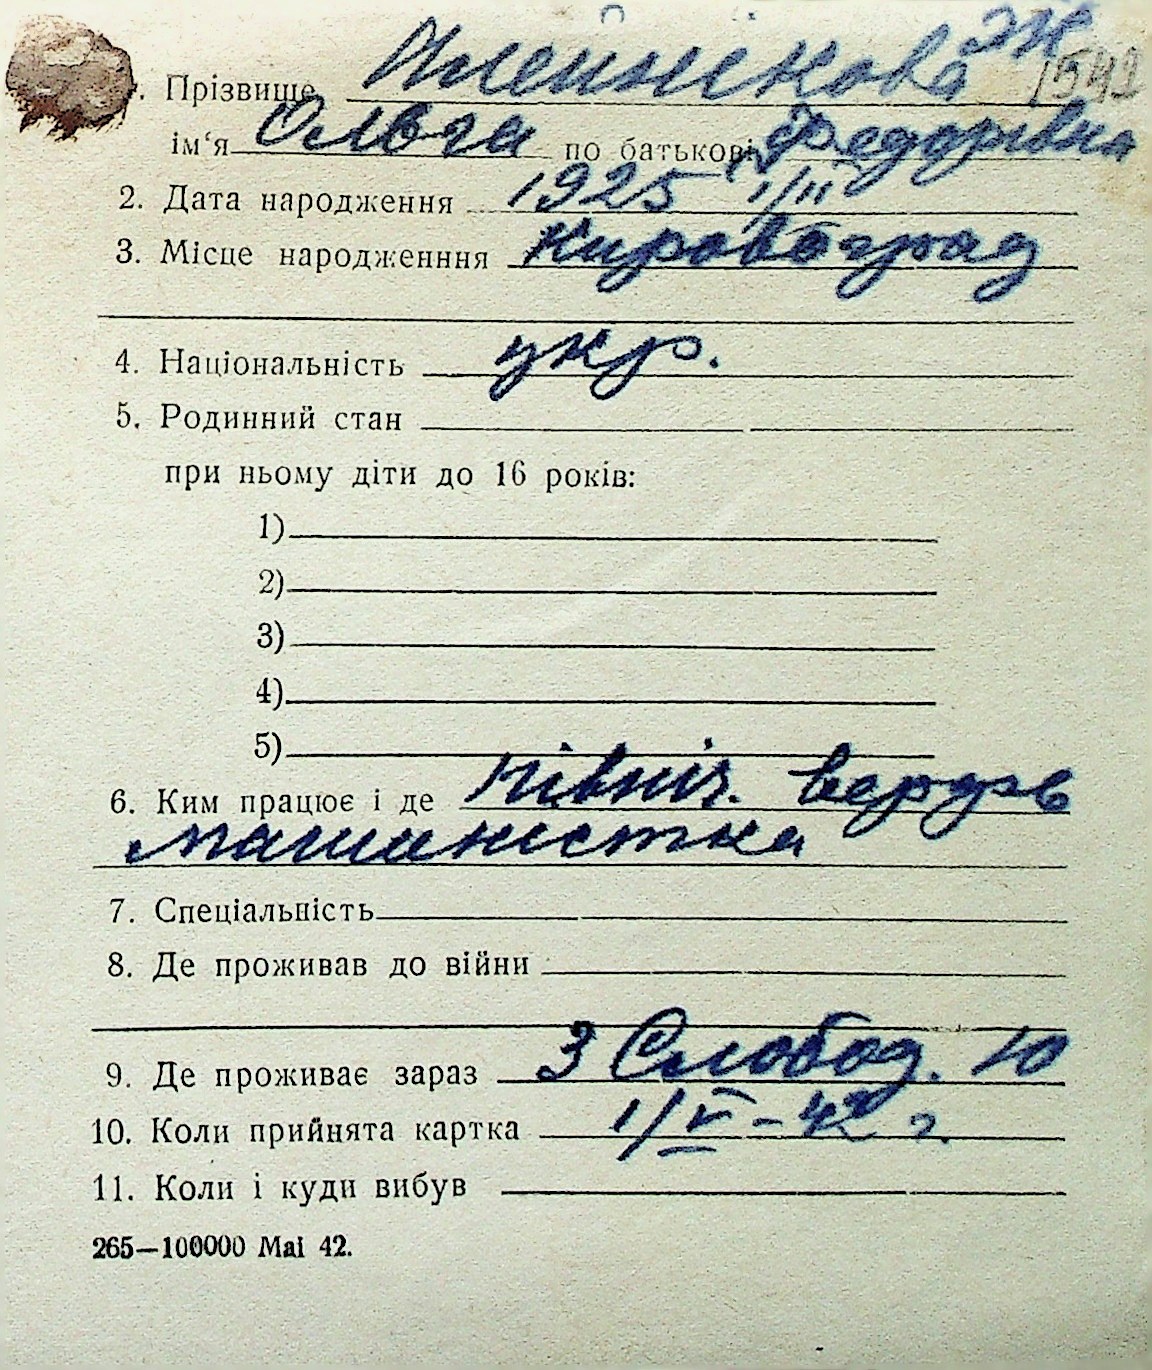 ЭК
1542
. Прізвище
ім'я Ольга по батькові Федорівна
2. Дата народження 1925 1/III
3. Місце народженння Кировоград
4. Національність укр.
5. Родинний стан
при ньому діти до 16 років:
1)
2)
3)
4)
5)
6. Ким працює і де Північ. верфь
машинистка
7. Спеціальність
8. Де проживав до війни
9. Де проживає зараз 3 Слобод. 10
10. Коли прийнята картка 1/V - 42 г.
11. Коли і куди вибув
265—100000 Mai 42.